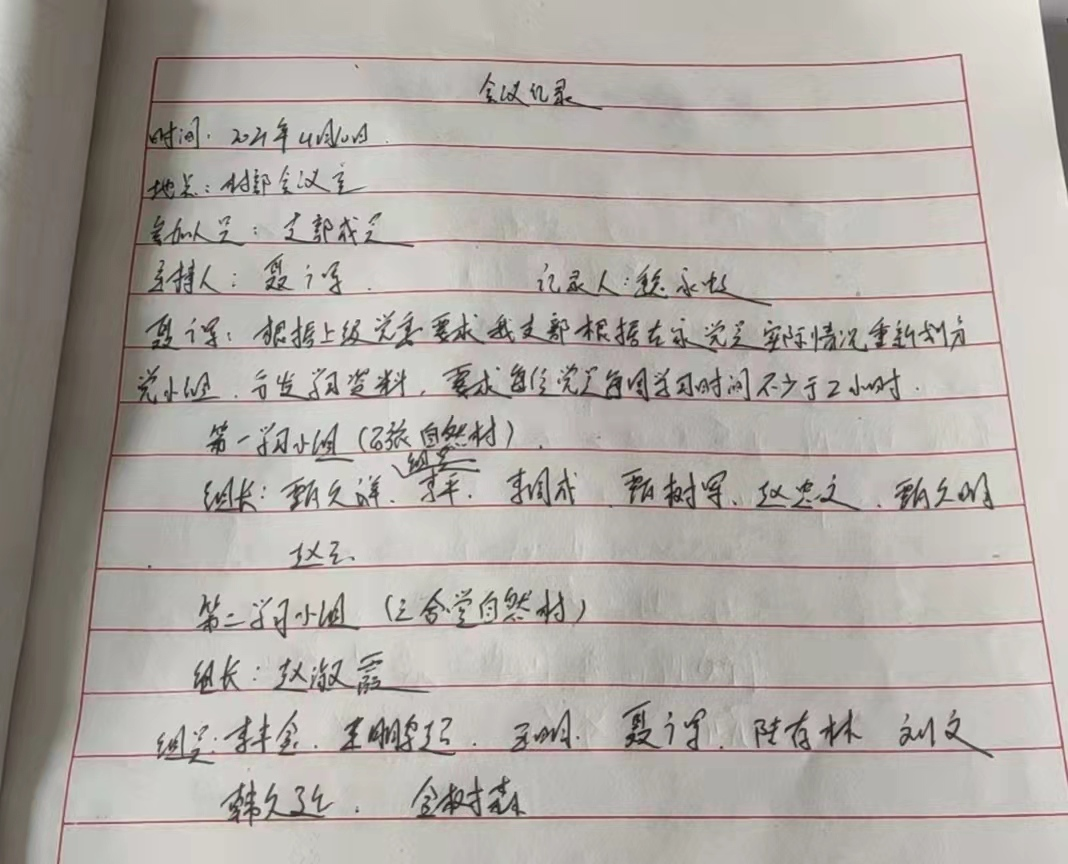 会议记录
时间：2021年4月10日.
地点：村部会议室
参加人员：支部成员
主持人：聂军. 记录人：永
聂军：根据上级党委要求我支部根据在家党员实际情况重新划分
党小组.分发学习资料，要求每位党员每周学习时间不少于2小时.
第一学习小组(石张自然村).
组员
组长：甄久祥、李平.李国成.甄树军、赵忠文.甄久明
赵云
第二学习小组(三合堂自然村)
组长：赵淑霞
组员：李丰金.王明.聂军.陆存林 刘文
韩久.金树森